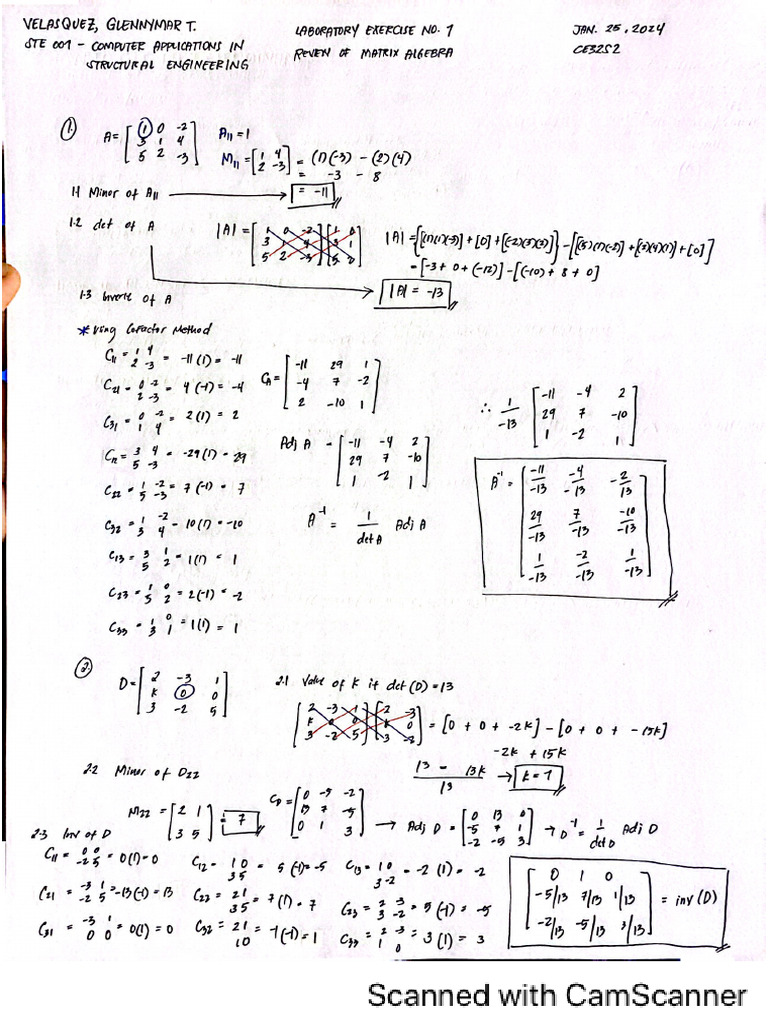 VELASQUEZ, GLENNYMAR T.
STE 001 - COMPUTER APPLICATIONS IN
STRUCTURAL ENGINEERING
LABORATORY EXERCISE NO. 1
REVIEW OF MATRIX ALGEBRA
JAN. 25, 2024
CE32S2
1.
A = [ 1 0 -2
3 1 4
5 2 -3 ]
A11 = 1
M11 = [ 1 4
2 -3 ] = (1)(-3) - (2)(4)
= -3 - 8
= -11
1.1 Minor of A11
1.2 det of A
|A| = [ 1 0 -2 ] [ 1 0
3 1 4 3 1
5 2 -3 5 2 ]
|A| = {[(1)(1)(-3)] + [0] + [(-2)(3)(2)]} - {[(5)(1)(-2)] + [(2)(4)(1)] + [0]}
= [-3 + 0 + (-12)] - [(-10) + 8 + 0]
|A| = -13
1.3 Inverse of A
* Using Cofactor Method
C11 = 1 4
2 -3 = -11 (1) = -11
C21 = 0 -2
2 -3 = 4 (-1) = -4
C31 = 0 -2
1 4 = 2 (1) = 2
C12 = 3 4
5 -3 = -29 (1) = 29
C22 = 1 -2
5 -3 = 7 (-1) = 7
C32 = 1 -2
3 4 = 10 (1) = -10
C13 = 3 1
5 2 = 1 (1) = 1
C23 = 1 0
5 2 = 2 (-1) = -2
C33 = 1 0
3 1 = 1 (1) = 1
CA = [ -11 29 1
-4 7 -2
2 -10 1 ]
Adj A = [ -11 -4 2
29 7 -10
1 -2 1 ]
A^-1 = 1/detA Adj A
∴ 1/-13 [ -11 -4 2
29 7 -10
1 -2 1 ]
A^-1 = [ -11/-13 -4/-13 -2/13
29/-13 7/-13 -10/-13
1/-13 -2/-13 1/-13 ]
2.
D = [ 2 -3 1
K 0 0
3 -2 5 ]
2.1 Value of K if det (D) = 13
[ 2 -3 1 ] [ 2 -3
K 0 0 K 0
3 -2 5 3 -2 ] = [0 + 0 + -2K] - [0 + 0 + -15K]
-2K + 15K
13 = 13K
13
→ K = 1
2.2 Minor of D22
M22 = [ 2 1
3 5 ] = 7
2.3 Inv of D
CD = [ 0 -5 -2
13 7 -5
0 1 3 ]
→ Adj D = [ 0 13 0
-5 7 1
-2 -5 3 ] → D^-1 = 1/detD Adj D
C11 = 0 0
-2 5 = 0 (1) = 0
C12 = 1 0
3 5 = 5 (-1) = -5
C13 = 1 0
3 -2 = -2 (1) = -2
C21 = -3 1
-2 5 = -13 (-1) = 13
C22 = 2 1
3 5 = 7 (1) = 7
C23 = 2 -3
3 -2 = 5 (-1) = -5
C31 = -3 1
0 0 = 0 (1) = 0
C32 = 2 1
1 0 = -1 (-1) = 1
C33 = 2 -3
1 0 = 3 (1) = 3
[ 0 1 0
-5/13 7/13 1/13
-2/13 -5/13 3/13 ] = inv (D)
Scanned with CamScanner